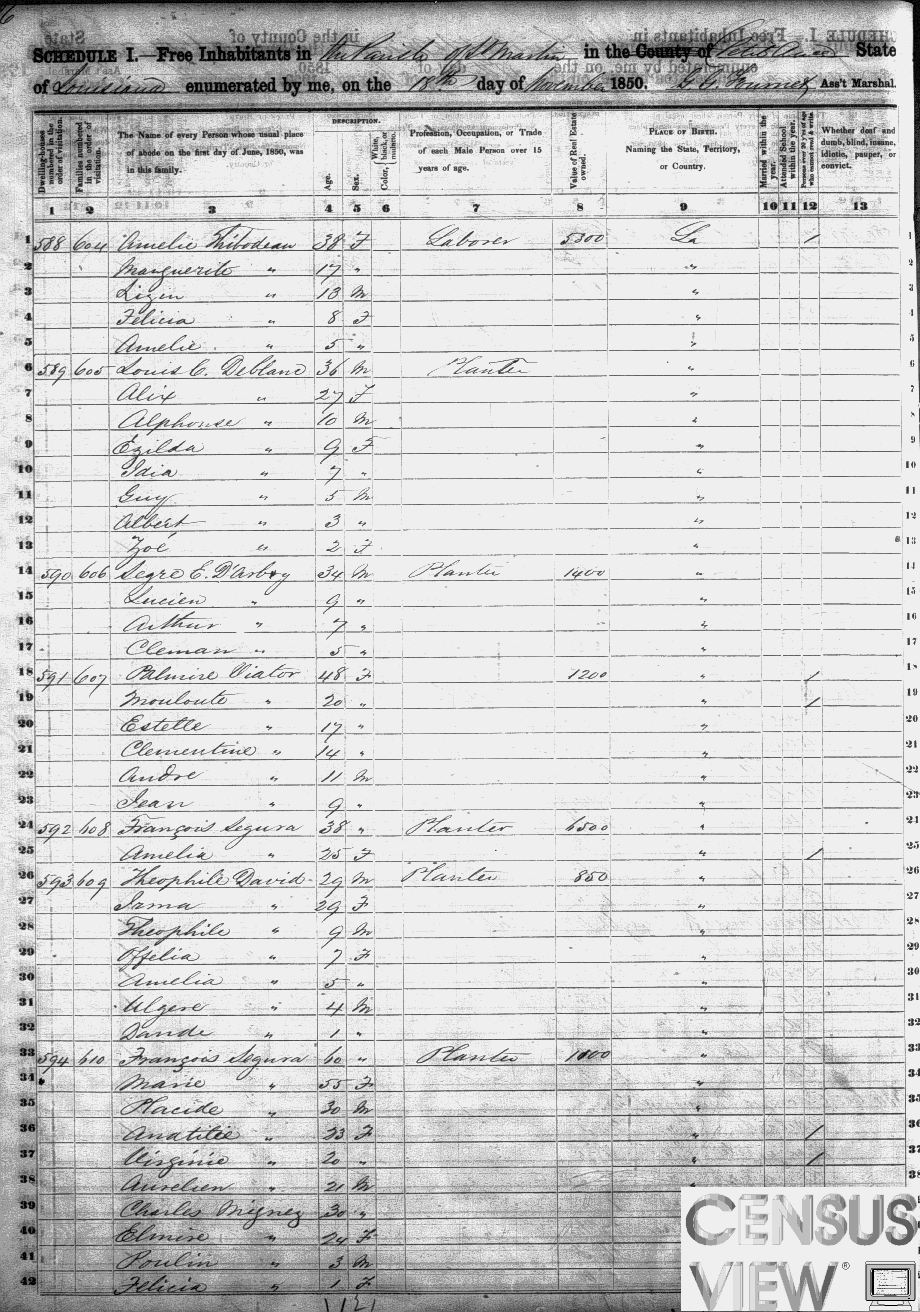 SCHEDULE I.—Free Inhabitants in the Parish of St Martin in the County of Petit Anse State
of Louisiana enumerated by me, on the 18th day of November 1850. Ass't Marshal.
Dwelling-houses numbered in the order of visitation.
Families numbered in the order of visitation.
The Name of every Person whose usual place of abode on the first day of June, 1850, was in this family.
DESCRIPTION.
Age.
Sex.
Color, White, black, or mulatto.
Profession, Occupation, or Trade of each Male Person over 15 years of age.
Value of Real Estate owned.
PLACE OF BIRTH. Naming the State, Territory, or Country.
Married within the year.
Attended School within the year.
Persons over 20 y'rs of age who cannot read & write.
Whether deaf and dumb, blind, insane, idiotic, pauper, or convict.
1 2 3 4 5 6 7 8 9 10 11 12 13
1 588 604 Amelie Thibodeau 38 F Laborer 5300 La / 1
2 Marguerite " 17 " " 2
3 " 13 M " 3
4 Felicia " 8 F " 4
5 Amelie " 5 " " 5
6 589 605 Louis C. Deblanc 36 M Planter " 6
7 Alix " 27 F " 7
8 Alphonse " 10 M " 8
9 Ezilda " 9 F " 9
10 Idia " 7 " " 10
11 Guy " 5 M " 11
12 Albert " 3 " " 12
13 Zoé " 2 F " 13
14 590 606 Segre E. D'Arby 34 M Planter 1400 " 14
15 Lucien " 9 " " 15
16 Arthur " 7 " " 16
17 Cleman " 5 " " 17
18 591 607 Palmire Viator 48 F 1200 " / 18
19 Mouloute " 20 " " / 19
20 Estelle " 17 " " 20
21 Clementine " 14 " " 21
22 Andre " 11 M " 22
23 Jean " 9 " " 23
24 592 608 François Segura 38 " Planter 6500 " 24
25 Amelia " 25 F " / 25
26 593 609 Theophile David 29 M Planter 850 " 26
27 Irma " 29 F " 27
28 Theophile " 9 M " 28
29 Offelia " 7 F " 29
30 Amelia " 5 " " 30
31 Ulgere " 4 M " 31
32 " 1 " " 32
33 594 610 François Segura 60 " Planter 1000 " 33
34 Marie " 55 F " 34
35 Placide " 30 M " 35
36 Anatilie " 23 F " / 36
37 Virginie " 20 " " / 37
38 Aurelien " 21 M " 38
39 Charles Miguez 30 "
40 Elmire " 24 F
41 Poulin " 3 M
42 Felicia " 1 F
CENSUS
VIEW®